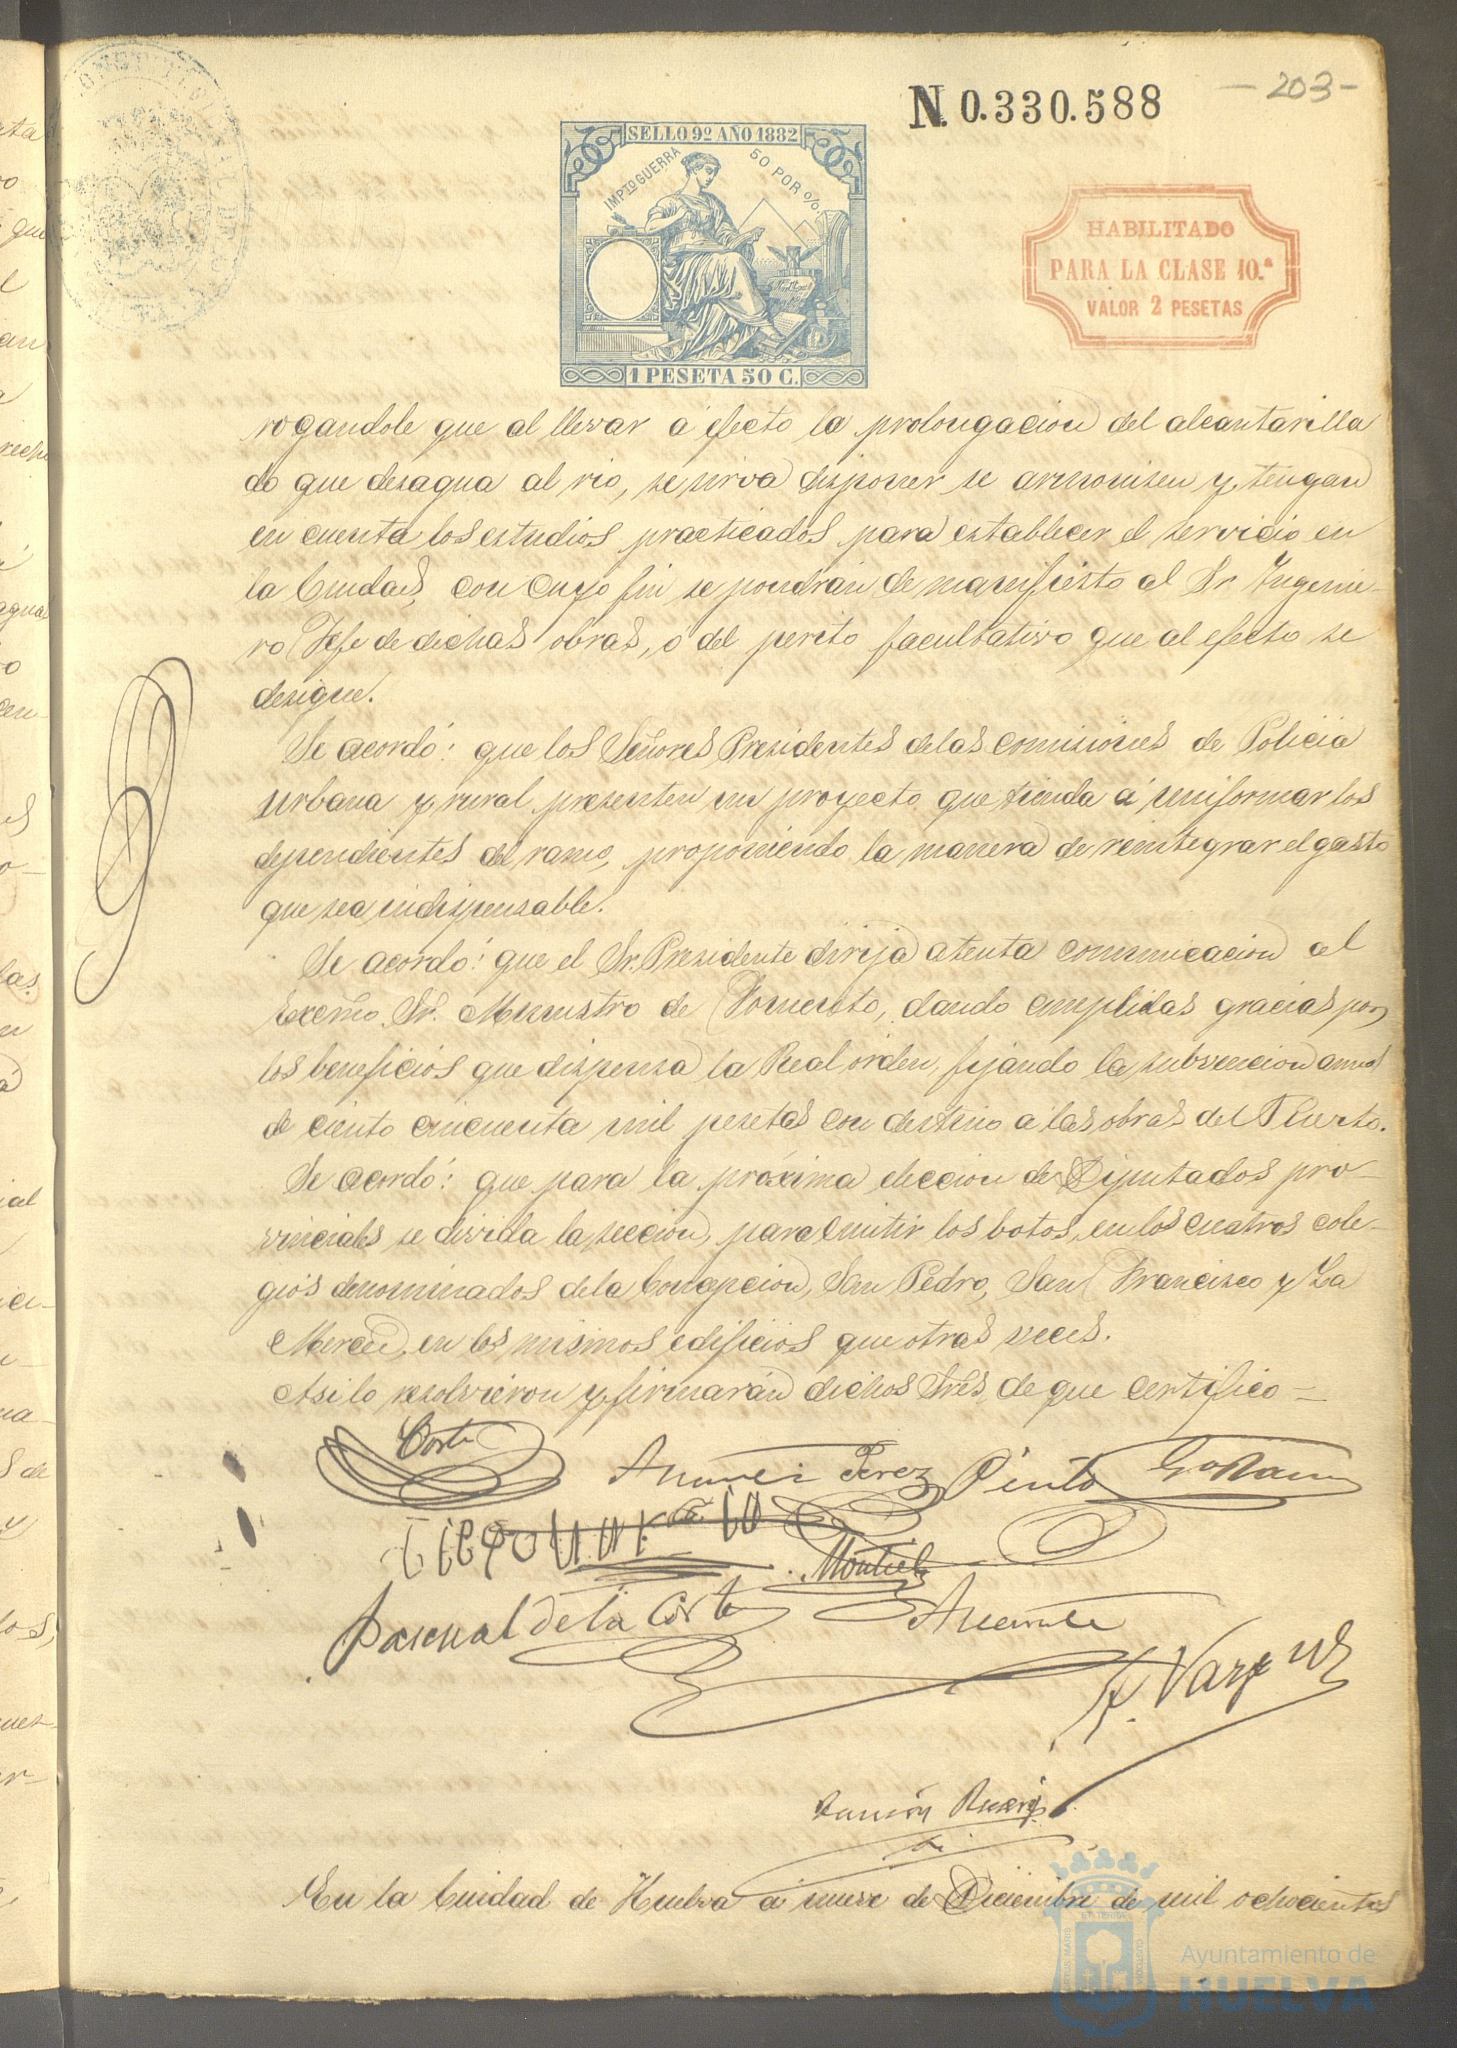 N. 0.330.588
- 203 -
SELLO 9º AÑO 1882
IMPTO GUERRA 50 POR %
1 PESETA 50 C.
HABILITADO
PARA LA CLASE 10.ª
VALOR 2 PESETAS
rogandole que al llevar á efecto la prolongacion del alcantarilla
do que desagua al rio, se sirva disponer se armonisen y tengan
en cuenta los estudios practicados para establecer el servicio en
la Ciudad, con cuyo fin se pondrán de manifiesto al Sr. Ingenie-
ro Jefe de dichas obras, ó del perito facultativo que al efecto se
designe.
Se acordó: que los Señores Presidentes de las comisiones de Policia
urbana y rural presenten un proyecto que tienda á uniformar los
dependientes del ramo, proponiendo la manera de reintegrar el gasto
que sea indispensable.
Se acordó: que el Sr. Presidente dirija atenta comunicacion al
Excmo. Sr. Ministro de Fomento, dando cumplidas gracias por
los beneficios que dispensa la Real orden, fijando la subvencion anual
de ciento cincuenta mil pesetas con destino a las obras del Puerto.
Se acordó: que para la próxima eleccion de Diputados pro-
vinciales se divida la seccion, para emitir los botos, en los cuatros cole-
gios denominados de la Concepcion, San Pedro, San Francisco y La
Merced, en los mismos edificios que otras veces.
Asi lo resolvieron y firmarán dichos Sres, de que certifico =
Corte Perez Pinto
Montiel
Pascual de la Corte
F. Vazquez
Ramón
En la Ciudad de Huelva á nueve de Diciembre de mil ochocientos
Ayuntamiento de
HUELVA